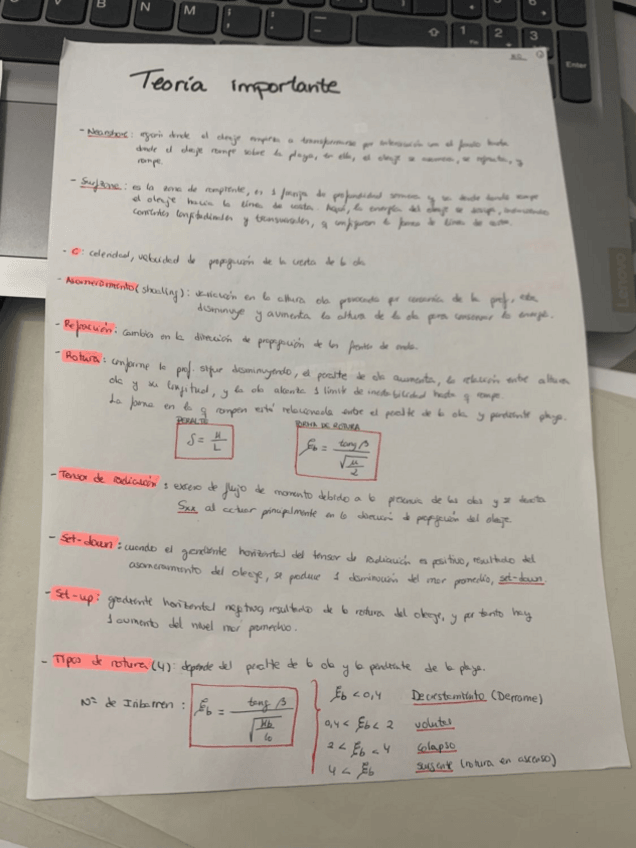 Teoría importante
- Nearshore: región donde el oleaje empieza a transformarse por interacción con el fondo hasta
donde el oleaje rompe sobre la playa, en ella, el oleaje se asomera, se refracta, y
rompe.
- Surfzone: es la zona de rompiente, es 1 franja de profundidad somera y va desde donde rompe
el oleaje hacia la línea de costa. Aquí, la energía del oleaje se disipa,
corrientes longitudinales y transversales, q configuran la forma de línea de costa.
- C: celeridad, velocidad de propagación de la cresta de la ola
- Asomeramiento (shoaling): variación en la altura ola provocada por de la prof, esta
disminuye y aumenta la altura de la ola para conservar la energía.
- Refracción: cambio en la dirección de propagación de los frentes de onda.
- Rotura: conforme la prof. sigue disminuyendo, el peralte de ola aumenta, la relación entre altura
ola y su longitud, y la ola alcanza 1 límite de inestabilidad hasta q rompe.
La forma en la q rompen está relacionada entre el peralte de la ola y pendiente playa.
PERALTE FORMA DE ROTURA
S = H/L ξb = tang β / √(H/2)
- Tensor de radiación: exceso de flujo de momento debido a la presencia de las olas y se denota
Sxx al actuar principalmente en la dirección d propagación del oleaje.
- Set-down: cuando el gradiente horizontal del tensor de radiación es positivo, resultado del
asomeramiento del oleaje, se produce 1 disminución del mar promedio, set-down.
- Set-up: gradiente horizontal negativo, resultado de la rotura del oleaje, y por tanto hay
1 aumento del nivel mar promedio.
- Tipos de rotura (4): depende del peralte de la ola y la pendiente de la playa.
Nº de Iribarren: ξb = tang β / √(Hb/Lo)
ξb < 0,4 Decrestamiento (Derrame)
0,4 < ξb < 2 volutas
2 < ξb < 4 colapso
4 < ξb surgente (rotura en ascenso)
B N M
1 2 3
Enter
Lenovo